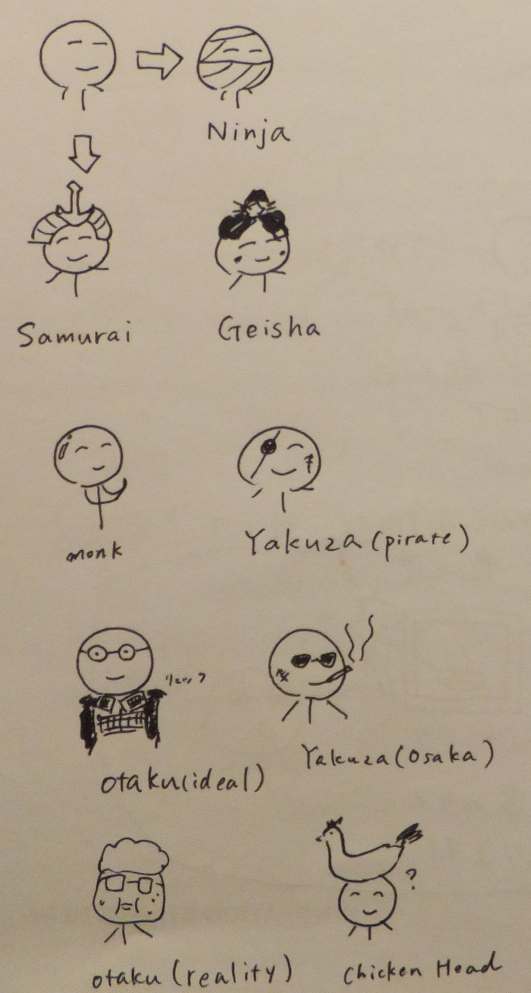 Ninja
Samurai
Geisha
monk
Yakuza (pirate)
リュック
otaku (ideal)
Yakuza (Osaka)
?
otaku (reality)
Chicken Head